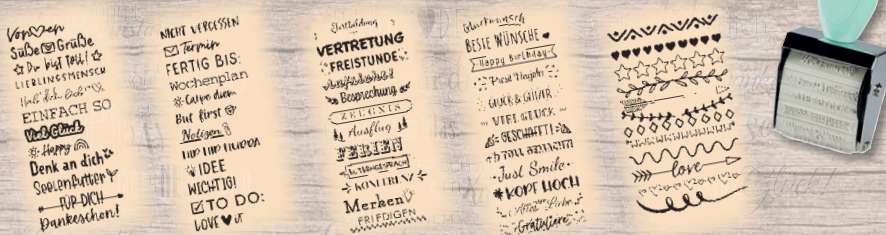 Süße Grüße
Du bist toll!
LIEBLINGSMENSCH
EINFACH SO
Viel Glück
Happy
Denk an dich
Seelenfutter
FÜR DICH
Dankeschön!
NICHT VERGESSEN
Termin
FERTIG BIS:
Wochenplan
Carpe diem
But first
Notizen
IDEE
WICHTIG!
TO DO:
LOVE it
Fortbildung
VERTRETUNG
FREISTUNDE
Besprechung
ZEUGNIS
Ausflug
FERIEN
ELTERNGESPRÄCH
KONFERENZ
Merken
ERLEDIGEN
Glückwunsch
BESTE WÜNSCHE
Happy Birthday
Prost Neujahr
GLÜCK & GLITZER
VIEL GLÜCK
GESCHAFFT!
Just Smile
KOPF HOCH
Gratuliere
love